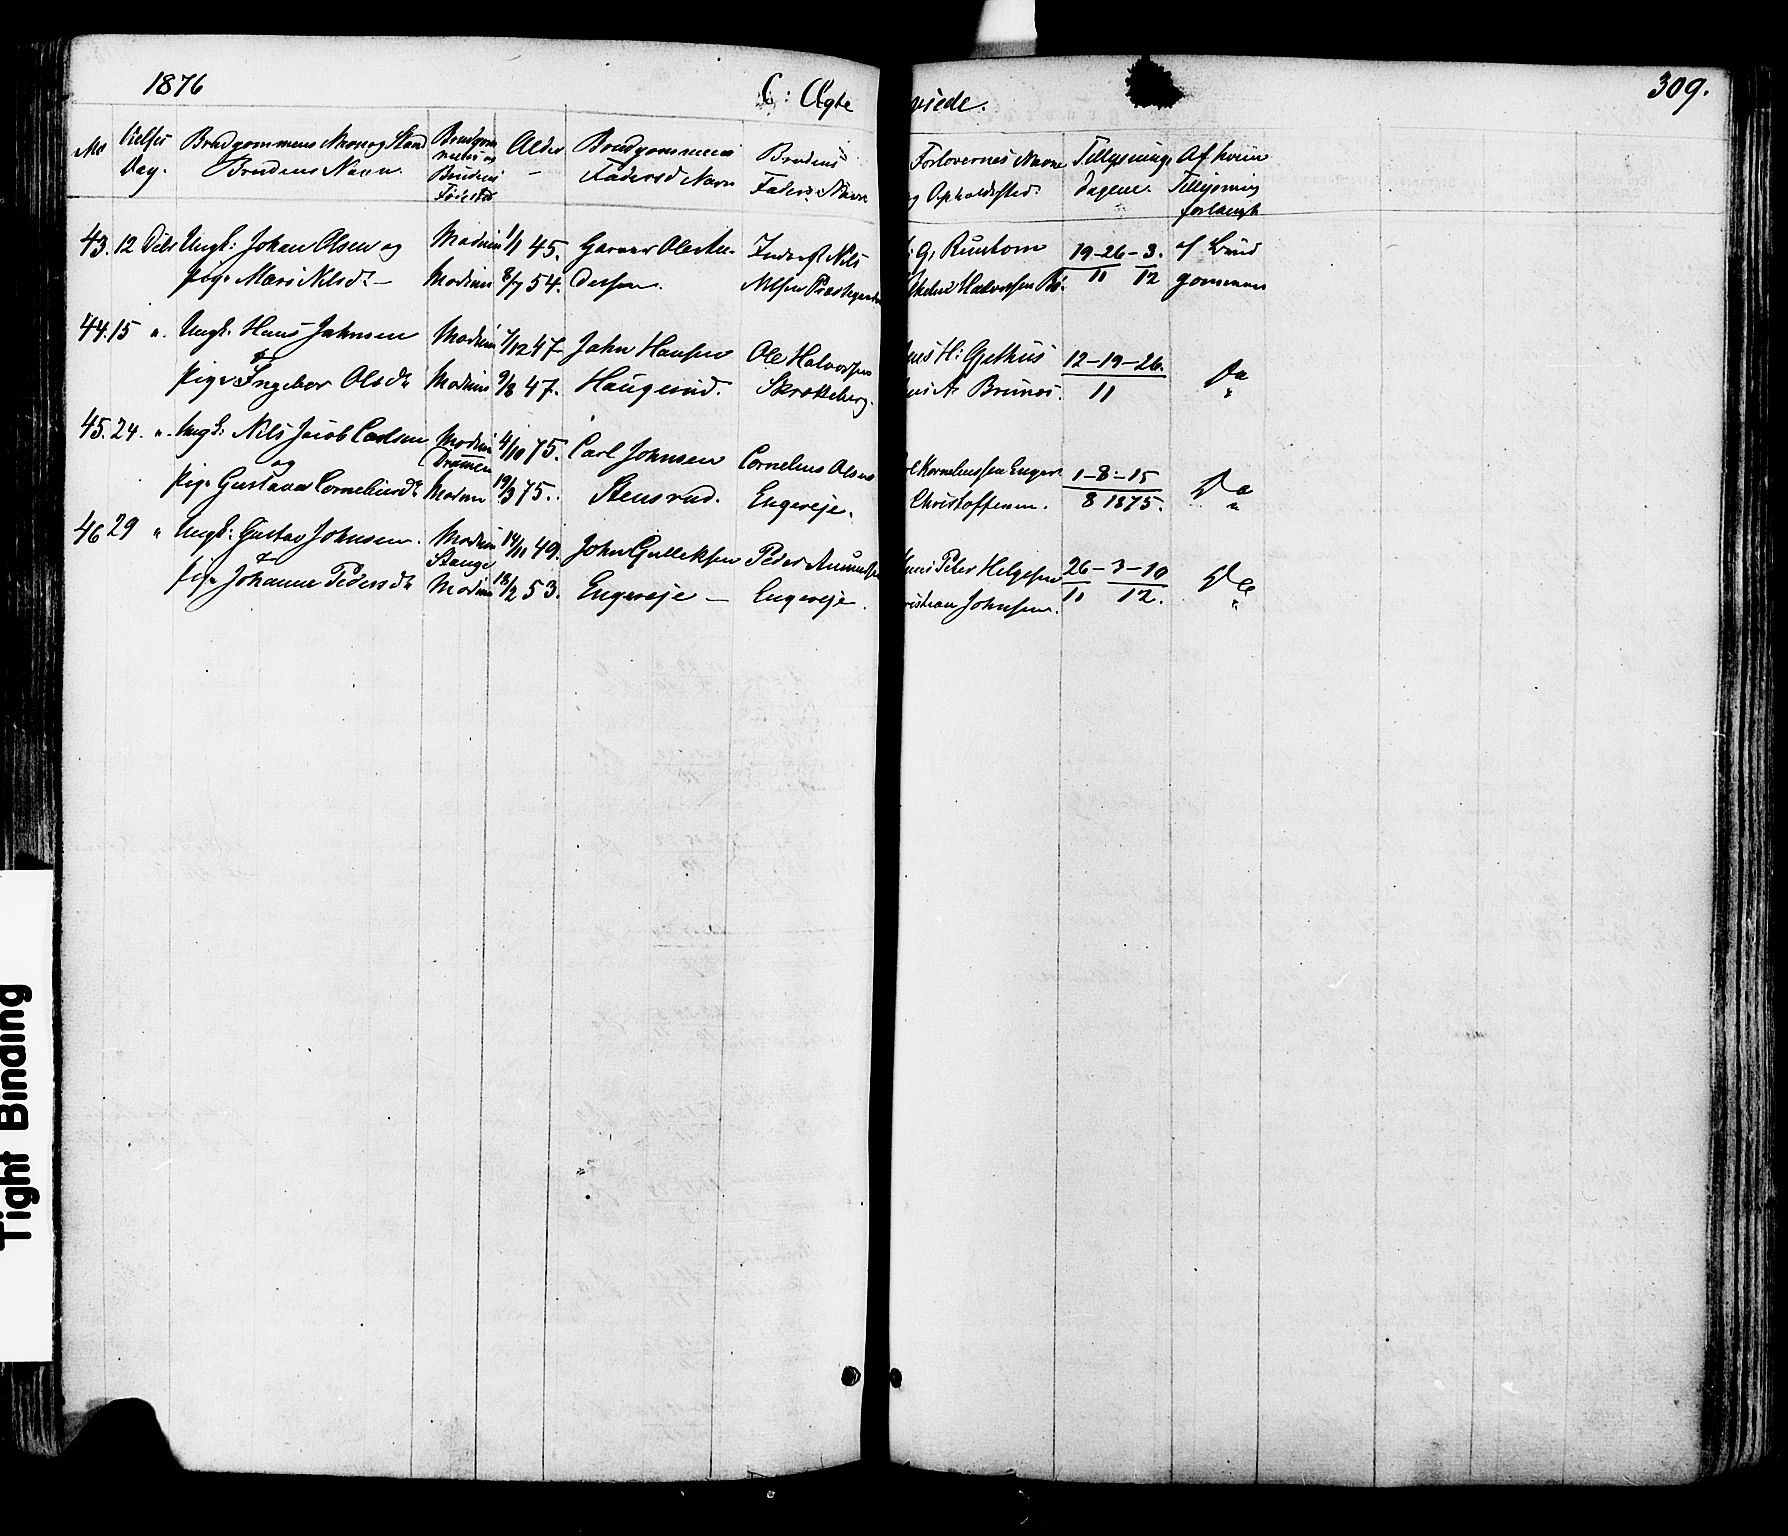 1876 C: Ægte viede. 309.
No Vielses Dag. Brudgommens Navn og Stand Brudens Navn. Brudgommens og Brudens Fødested Alder – Brudgommens Faders Navn Brudens Faders Navn Forlovernes Navne og Opholdssted. Tillysnings dagene. Af hvem Tillysning forlangt
43. 12 Dcbr Ungk: Johan Olsen og Modum 1/1 45. Garver Ole An- Inderst Nils G. Runtom 19-26-3. af Brud
Pige Mari Nilsdt – Modum 8/7 54. dersen. Nilsen Halvorsen 11 12 gommen
44. 15 " Ungk. Hans Johnsen Modum /12 47 – John Hansen Ole Halvorsen H: Gjethus 12-19-26. Do
& Pige Ingebor Olsdt Modum 9/8 47. Haugerud. Skrokeberg. A. Brunes. 11 "
45. 24. " Ungk. Nils Jacob Carlsen Modum 4/10 75. Carl Johnsen Cornelius Olsen Korneliussen Enger. 1-8-15 Do
og Drammen
Pige Gustava Corneliusdt Modum 19/3 75. Stensrud. Engereje. Christoffersen. 8 1875. "
46 29 " Ungk: Gustav Johnsen. Modum 14/11 49. John Gulleksen Peder Amundsen Hans Peter Helgesen 26-3-10 Do
& Stange
Pige Johanne Pedersdt Modum 18/2 53. Engereje – Engereje. Christian Johnsen. 11 12. "
Tight Binding